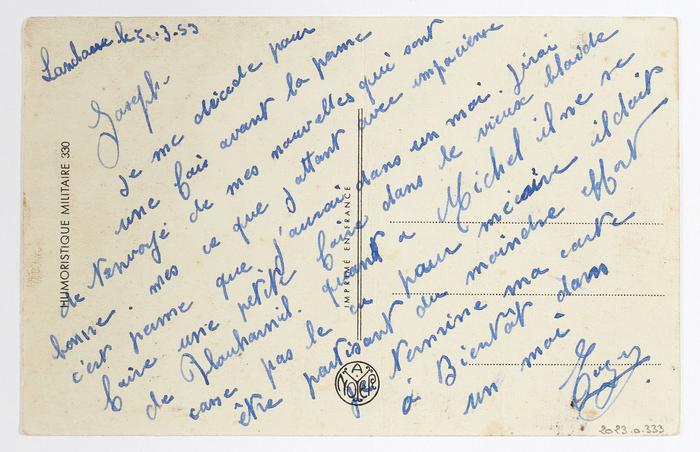 Landaure le 3-3-53
Joseph.
Je me décide pour
une fois avant la perme
de t'envoyé de mes nouvelles qui sont
bonne. mes ce que j'attant avec impacience
c'est perme que j'aurai dans un moi. J'irai
faire une petite foire dans le vieux blavde
de Plouharnil. quant a Michel il ne se
casse pas le cu pour mécrire il doit
être partisant du moindre effort
je termine ma carte
à Bientôt dans
un moi
HUMORISTIQUE MILITAIRE 330
IMPRIMÉ EN FRANCE
2023.0.333